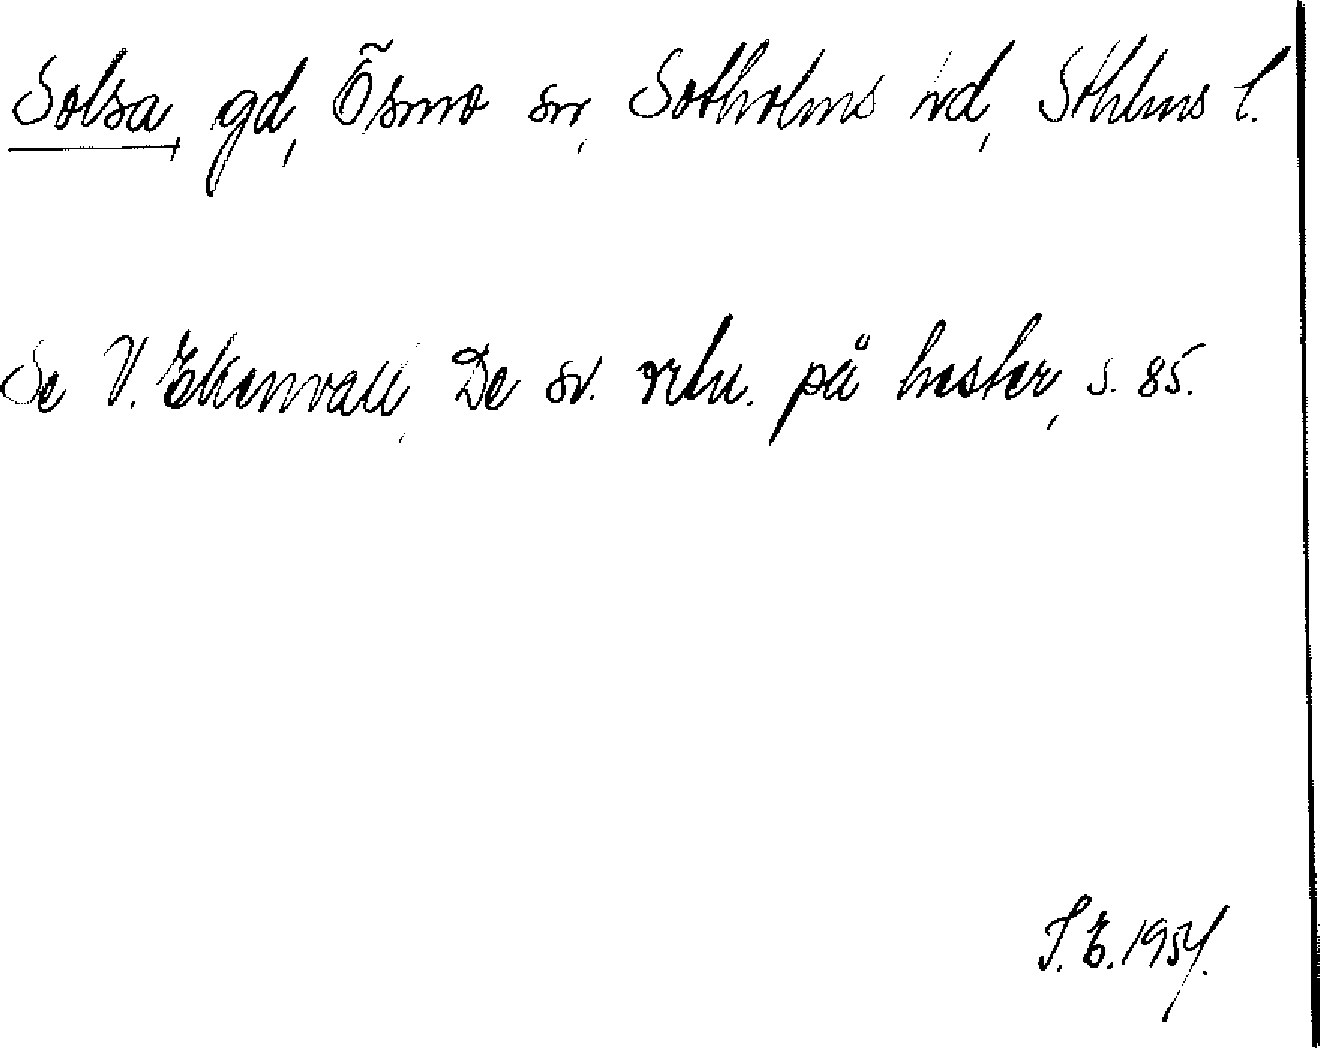 Solsa, gd, Ösmo sn, Sotholms hd, Sthlms l.
Se V. Ekenvall, De sv. ortn. på hester, s. 85.
S. E. 1954.